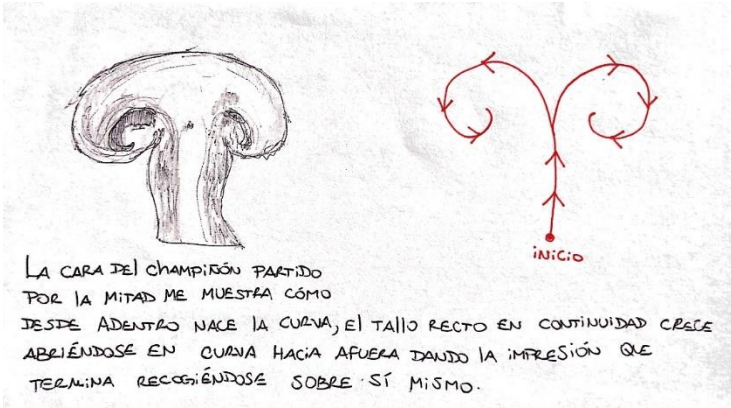 INICIO
LA CARA DEL CHAMPIÑÓN PARTIDO
POR LA MITAD ME MUESTRA CÓMO
DESDE ADENTRO NACE LA CURVA, EL TALLO RECTO EN CONTINUIDAD CRECE
ABRIÉNDOSE EN CURVA HACIA AFUERA DANDO LA IMPRESIÓN QUE
TERMINA RECOGIÉNDOSE SOBRE SÍ MISMO.